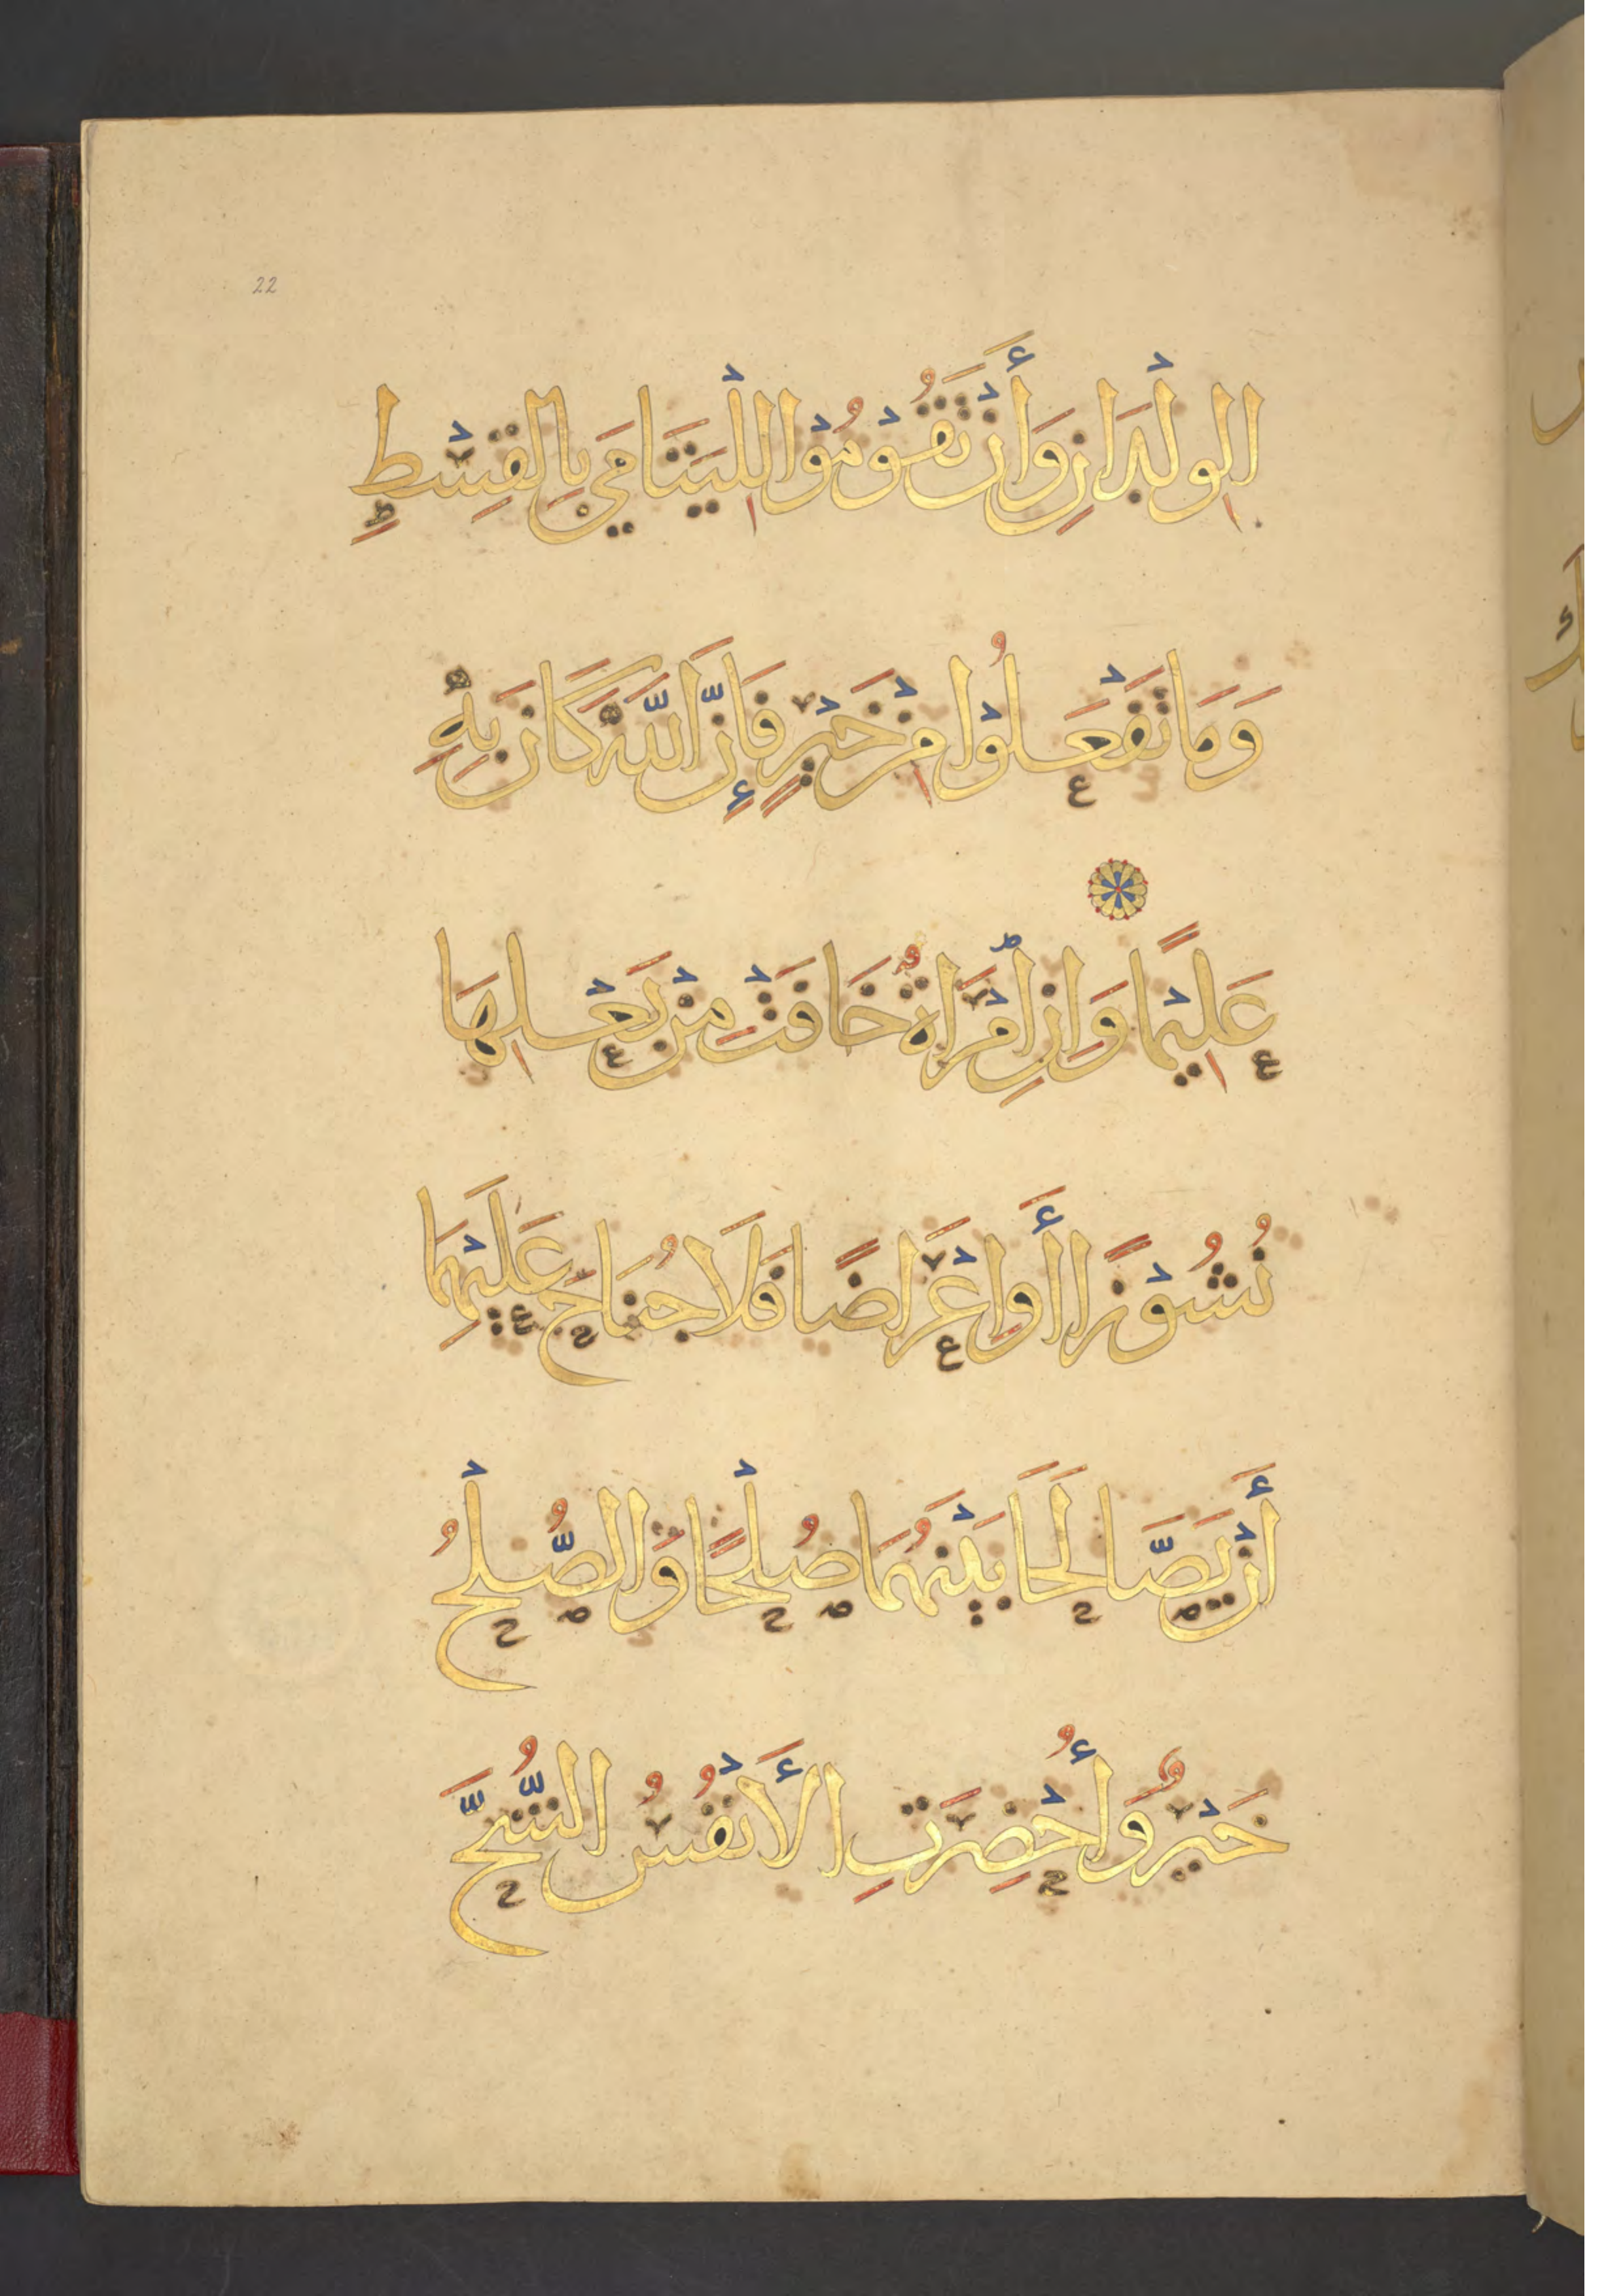 22
الوِلْدَانِ وَأَنْ تَقُوْمُوْا لِلْيَتَامَى بِالقِسْطِ
وَمَا تَفْعَلُوْا مِنْ خَيْرٍ فَإِنَّ اللَّهَ كَانَ بِهِ
عَلِيْمًا وَإِنِ امْرَأَةٌ خَافَتْ مِنْ بَعْلِهَا
نُشُوْزًا أَو اِعْرَاضًا فَلَا جُنَاحَ عَلَيْهِمَا
أَنْ يَصَّالَحَا بَيْنَهُمَا صُلْحًا وَالصُّلْحُ
خَيْرٌ وَأُحْضِرَتِ الأَنْفُسُ الشُّحَّ